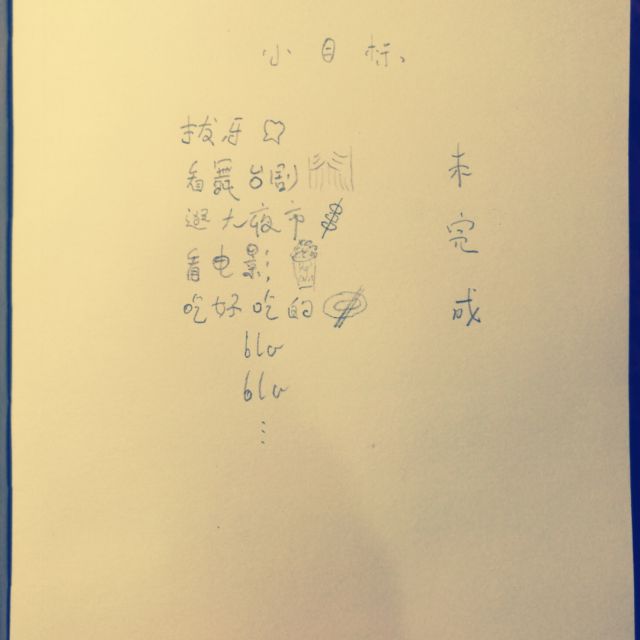 小目标、
拔牙
看舞台剧
逛大夜市
看电影
吃好吃的
bla
bla
⋮
未
完
成